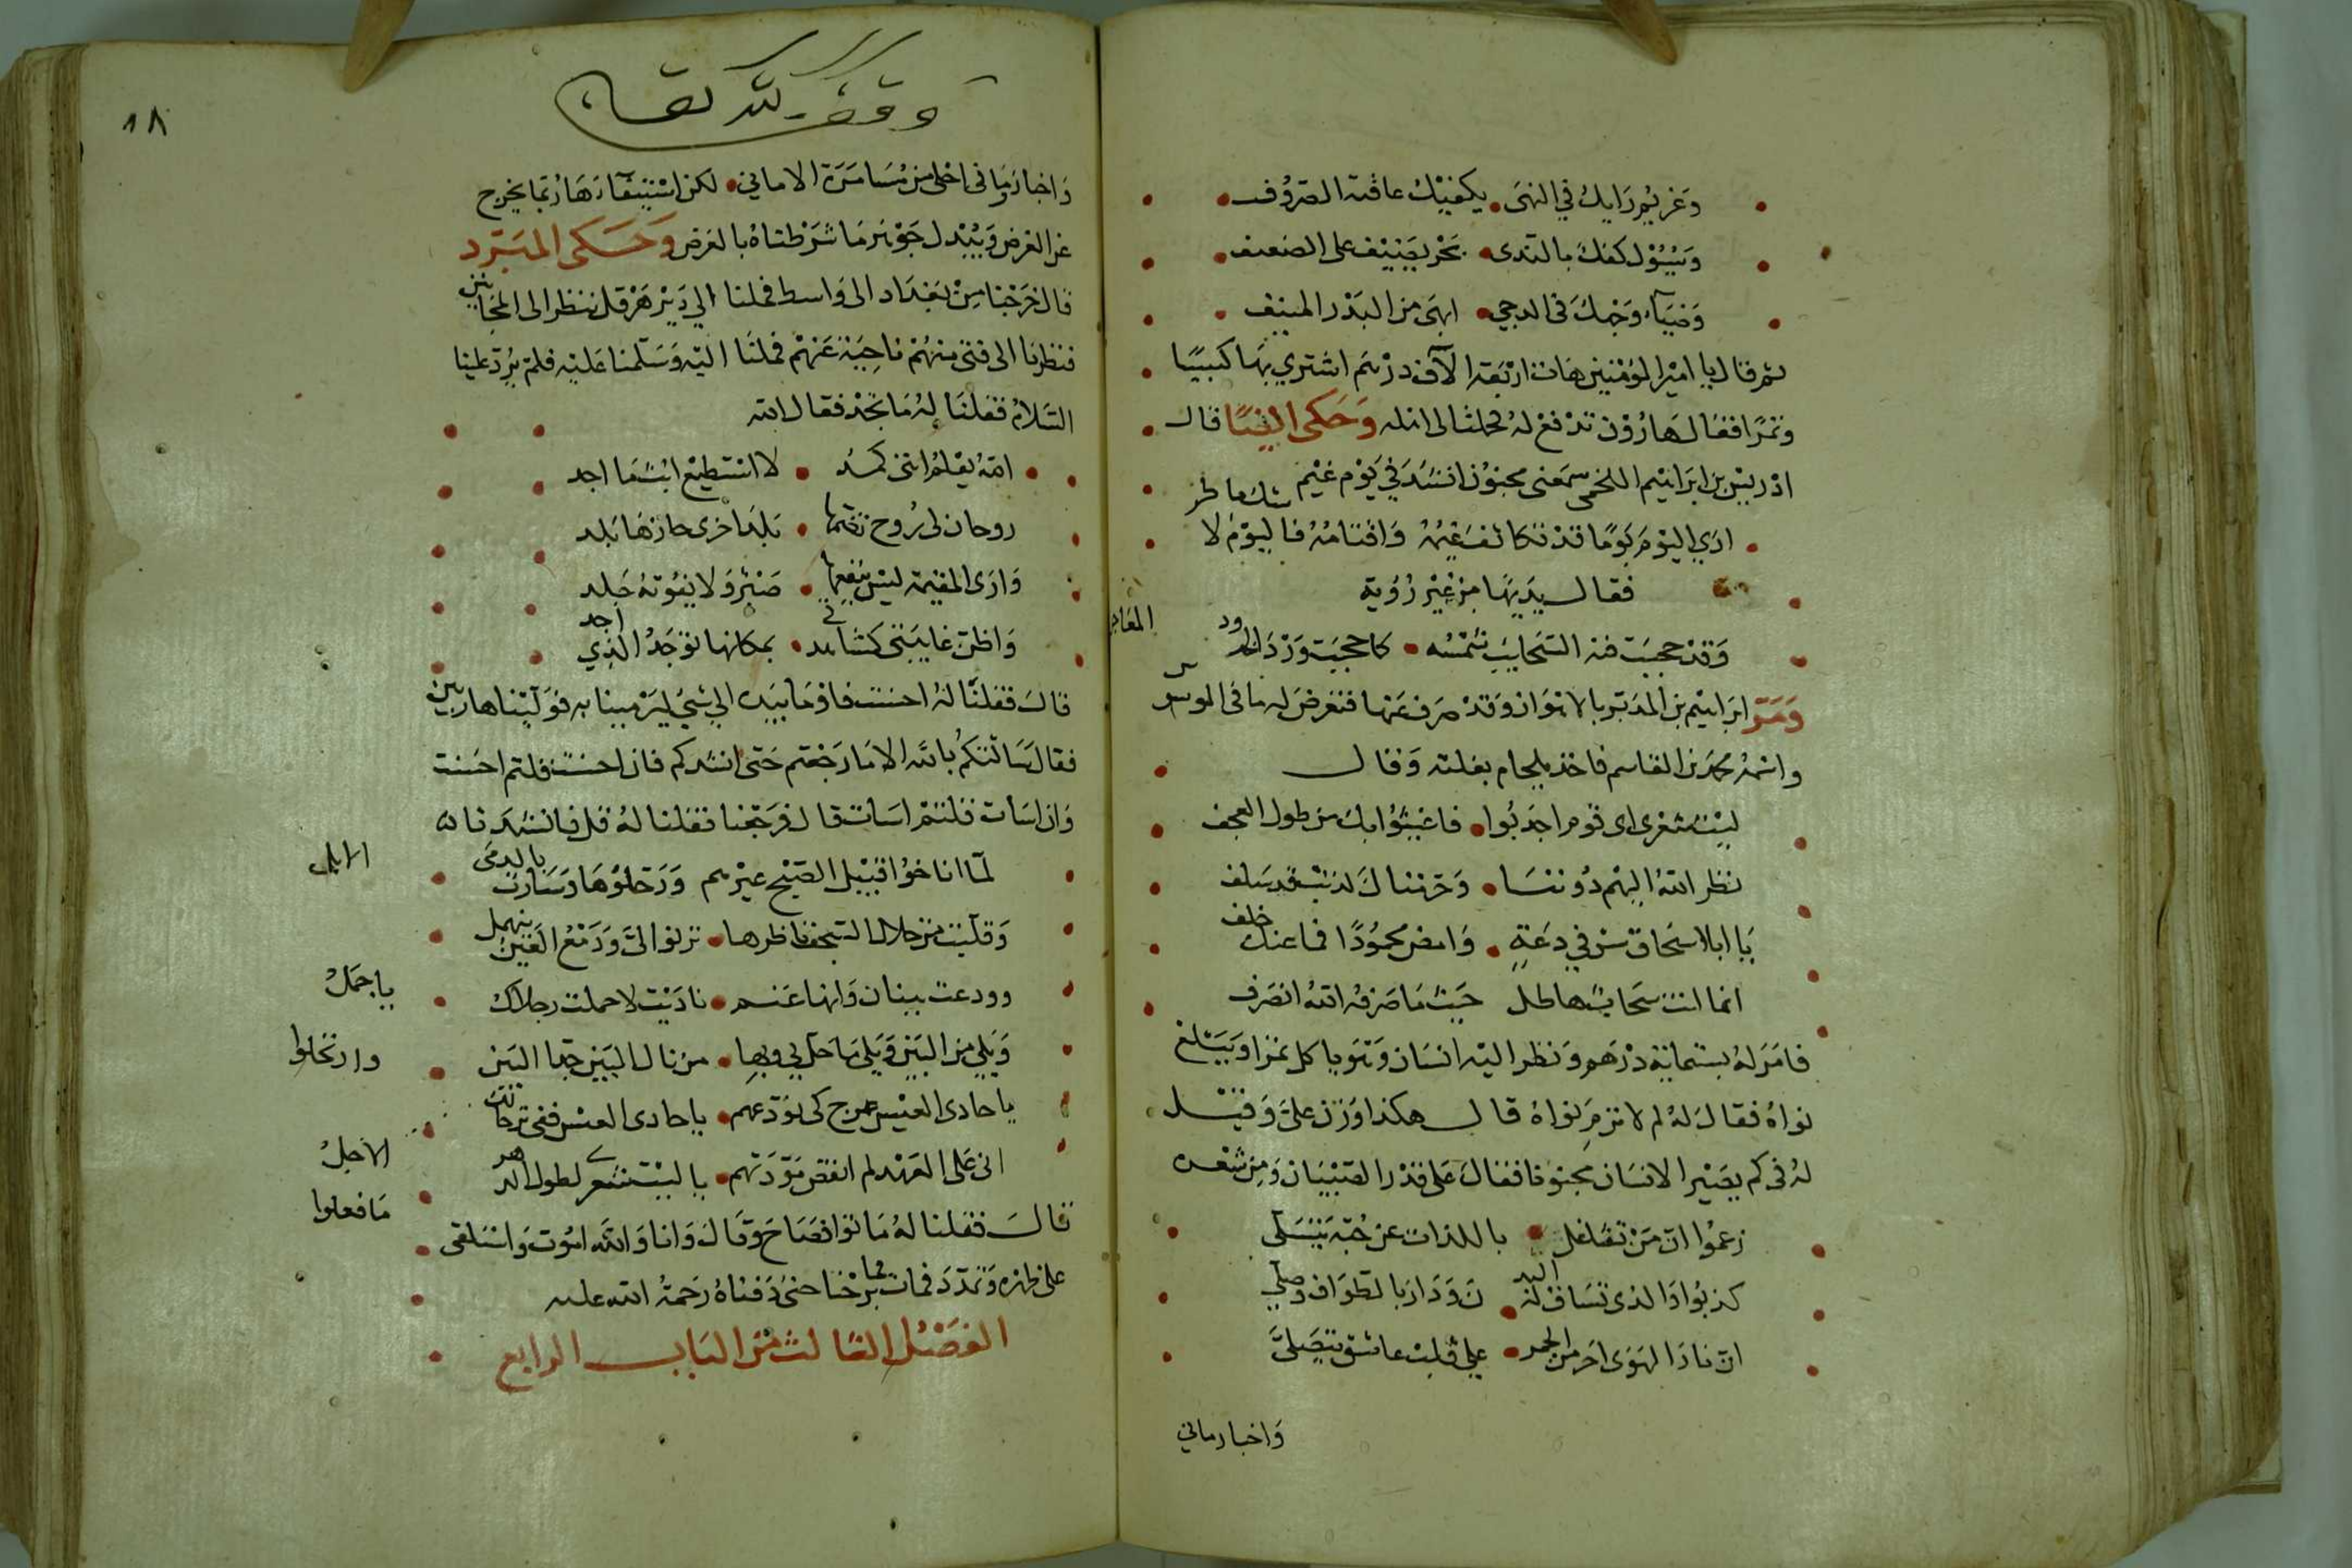 وعزيم رايك في النهى يكفيك عاقبة الصروف
وسيول كفك بالندى بحر يضيف على الضعيف
وضياء وجهك في الدجى ابهى من البدر المنيف
ثم قال يا امير المؤمنين هات اربعة الاف درهم اشتري بها كبيسا
وتمرا فقال هارون تدفع له فحملت الى اهله وحكى قال
ادريس بن ابراهيم اللخمي سمعني مجنون انشد في يوم غيم
ارى اليوم يوما قد تكاثف غيمه واقتامه فاليوم لا شك ماطر
فقال بديها من غير روية
وقد حجبت فيه السحايب شمسه كما حجبت ورد الخدود المعاجر
ومر ابراهيم بن المدبر بالاهواز وقد صرف عنها فتعرض له ماني الموسوس
واسمه محمد بن القاسم فاخذ بلجام بغلته وقال
ليت شعري اي قوم اجدبوا فاغيثوا بك من طول العجف
نظر الله اليهم دوننا وحرمناك لذنب قد سلف
يا ابا اسحاق سر في دعة وامض محمودا فما عنك خلف
انما انت سحاب هاطل حيث ما صرفه الله انصرف
فامر له بستماية درهم ونظر اليه انسان وهو ياكل تمرا ويبتلع
نواه فقال له لم لا ترم نواه قال هكذا وزن علي وقيل
له في كم يصير الانسان مجنونا فقال على قدر الصبيان ومن شعره
زعموا ان من تشاغل باللذات عن حبه يتسلى
كذبوا والذي تساق له البدن ودار بالطواف وصلى
ان نار الهوى احر من الجمر على قلب عاشق يتصلى
واخبار ماني
وقف لله تعالى
١٨
واخبار ماني احلى من مسامرة الاماني لكن استيفاءها ربما يخرج
عن الغرض ويبدل جوهر ما شرطناه بالعرض وحكى المبرد
قال خرجنا من بغداد الى واسط فملنا الى دير هزقل ننظر الى المجانين
فنظرنا الى فتى منهم ناحية عنهم فملنا اليه وسلمنا عليه فلم يرد علينا
السلام فقلنا له ما تجد فقال لله
الله يعلم انني كمد لا استطيع ابث ما اجد
روحان لي روح تضمها بلد واخرى حازها بلد
وارى المقيمة ليس ينفعها صبر ولا يفوته جلد
واظن غايبتي كشاهدتي بمكانها توجد الذي اجد
قال فقلنا له احسنت فاومأ بيده الى شيء ليرمينا به فولينا هاربين
فقال سالتكم بالله الا ما رجعتم حتى انشدكم فان احسنت قلتم احسنت
وان اسات قلتم اسات قال فرجعنا فقلنا له قل فانشد قال
لما اناخوا قبيل الصبح عيرهم ورحلوها وسارت بالدمى الابل
وقلبت من خلال السجف ناظرها ترنو الي ودمع العين ينهمل
وودعت ببنان زانها عنم ناديت لا حملت رجلاك يا جمل
ويلي من البين ويلي ما حل بي وبها من نال البين حل البين وارتحلوا
يا حادي العيس عرج كي نودعهم يا حادي العيس في ترحالك الاجل
اني على العهد لم انقض مودتهم يا ليت شعري لطول الدهر ما فعلوا
قال فقلنا له ماتوا فصاح وقال وانا والله اموت واستلقى
على ظهره وتمدد فمات فما برحنا حتى دفناه رحمة الله عليه
الفصل الثالث من الباب الرابع